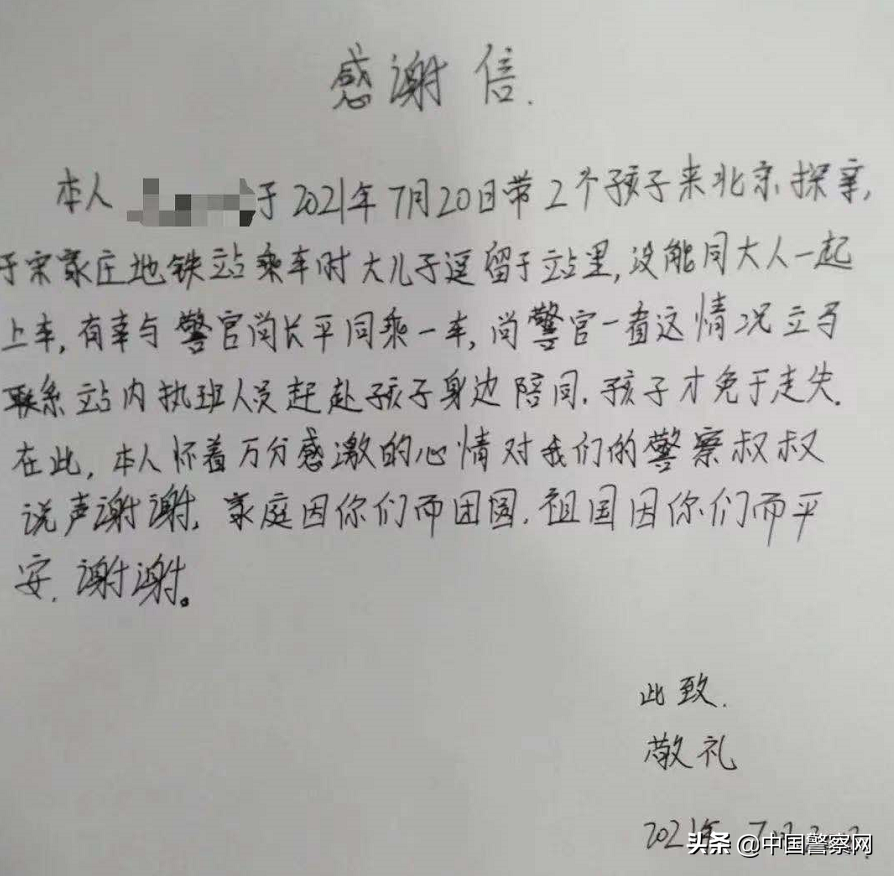 感谢信.
本人 于2021年7月20日带2个孩子来北京探亲,
于宋家庄地铁站乘车时大儿子逗留于站里,没能同大人一起
上车,有幸与警官尚长平同乘一车,尚警官一看这情况立马
联系站内执班人员赶赴孩子身边陪同.孩子才免于走失.
在此,本人怀着万分感激的心情对我们的警察叔叔
说声谢谢.家庭因你们而团圆.祖国因你们而平
安.谢谢。
此致.
敬礼
2021年 7.
头条 @中国警察网